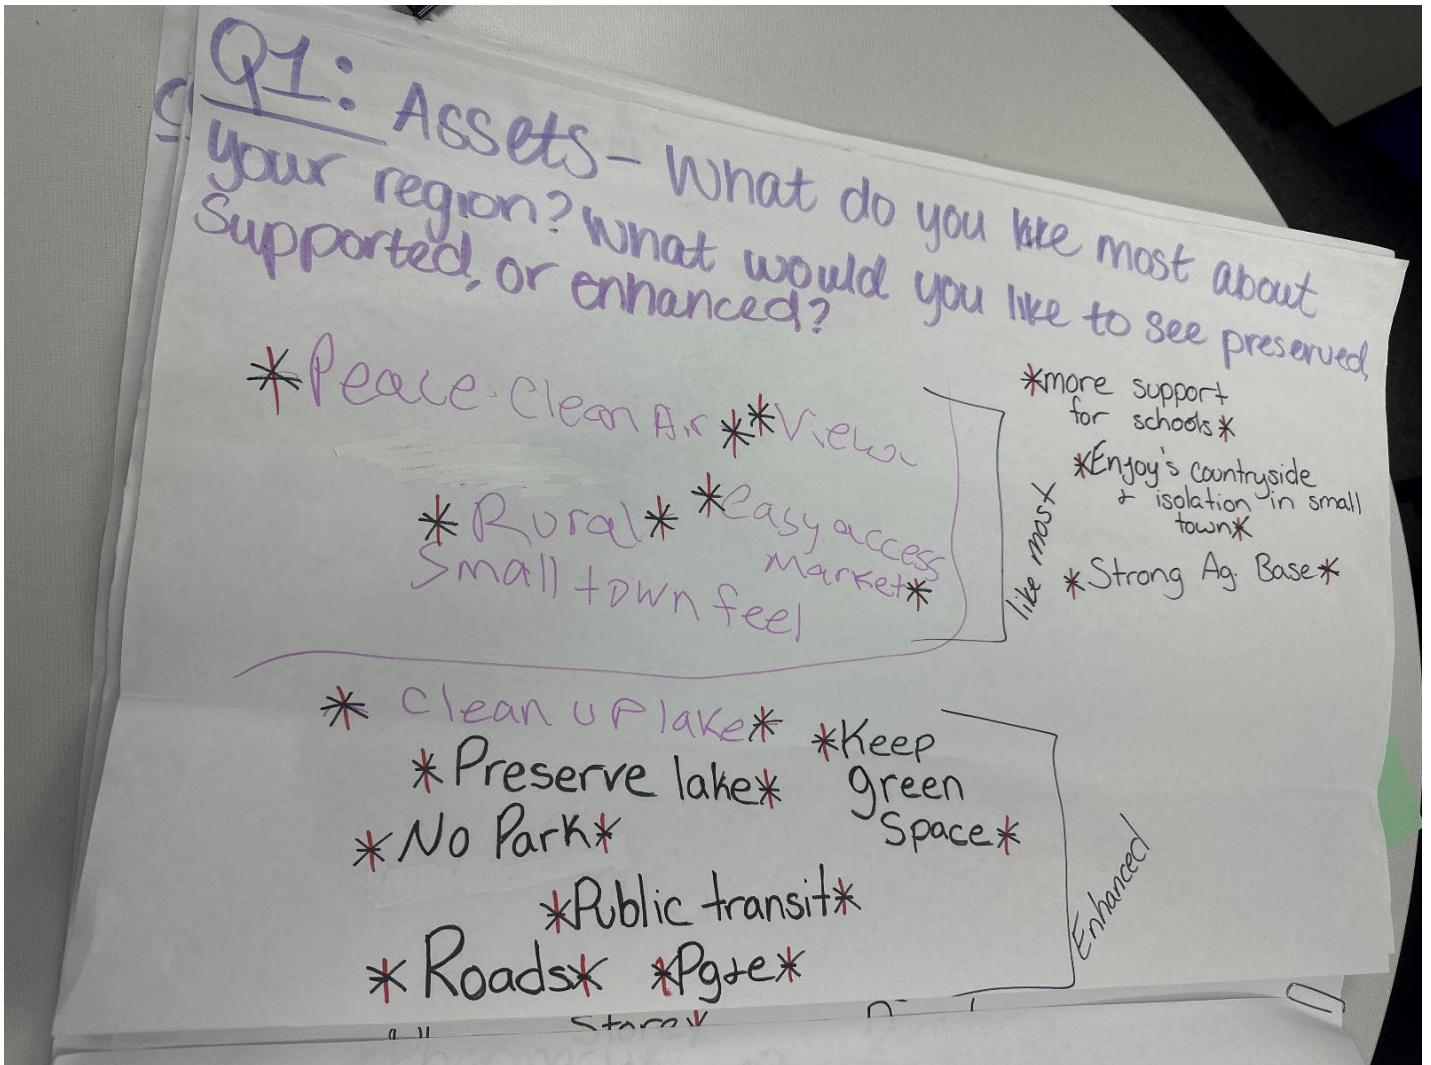 Q1: Assets - What do you like most about
your region? What would you like to see preserved,
Supported, or enhanced?
*Peace. Clean Air* *View
*Rural* *easy access
Market*
Small town feel
like most
*more support
for schools*
*Enjoy's countryside
+ isolation in small
town*
*Strong Ag. Base*
* Clean up lake*
*Preserve lake*
*Keep
green
Space*
*No Park*
*Public transit*
*Roads* *Pg+e*
Enhanced
Store*